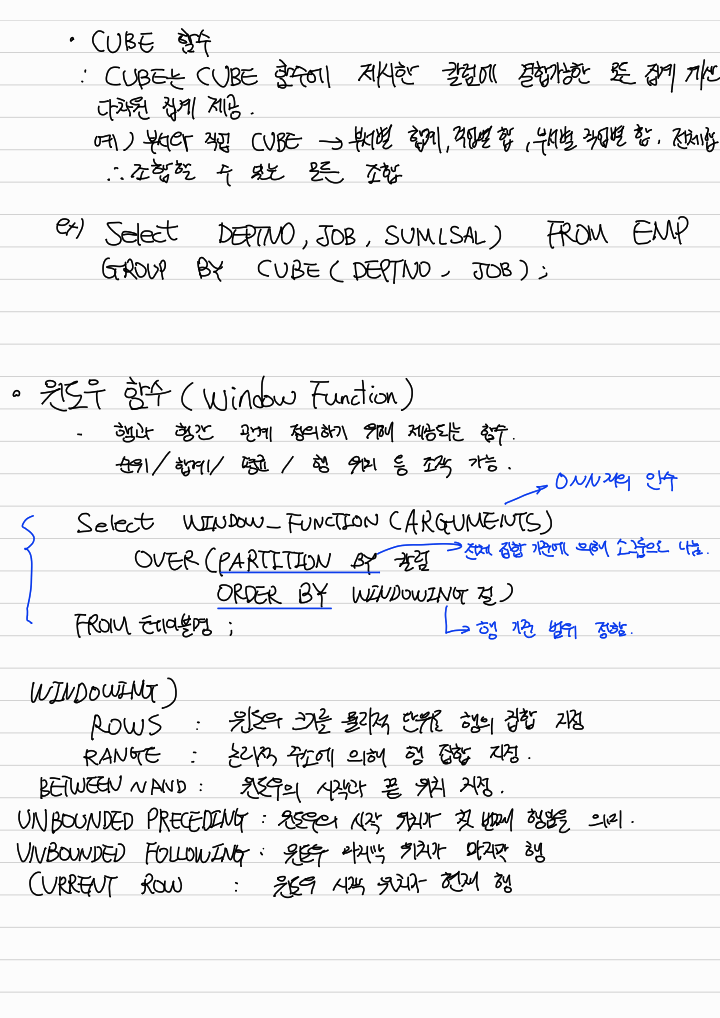 • CUBE 함수
: CUBE는 CUBE 함수에 제시한 칼럼에 결합가능한 모든 집계 계산
다차원 집계 제공.
예) 부서와 직급 CUBE → 부서별 합계, 직업별 합, 부서별 직업별 합, 전체합
∴ 조합할 수 있는 모든 조합
ex) Select DEPTNO, JOB, SUM(SAL) FROM EMP
GROUP BY CUBE (DEPTNO, JOB);
• 윈도우 함수 (Window Function)
- 행과 행간 관계 정의하기 위해 제공되는 함수.
순위/합계/평균/ 행 위치 등 조작 가능.
0~N개의 인수
Select WINDOW_FUNCTION (ARGUMENTS)
OVER (PARTITION BY 칼럼
→ 전체 집합 기준에 의해 소그룹으로 나눔.
ORDER BY WINDOWING 절)
FROM 테이블명 ;
→ 행 기준 범위 정함.
WINDOWING)
ROWS : 윈도우 크기를 물리적 단위로 행의 집합 지정
RANGE : 논리적 주소에 의해 행 집합 지정.
BETWEEN ~ AND : 윈도우의 시작과 끝 위치 지정.
UNBOUNDED PRECEDING : 윈도우의 시작 위치가 첫 번째 행임을 의미.
UNBOUNDED FOLLOWING : 윈도우 마지막 위치가 마지막 행
CURRENT ROW : 윈도우 시작 위치가 현재 행